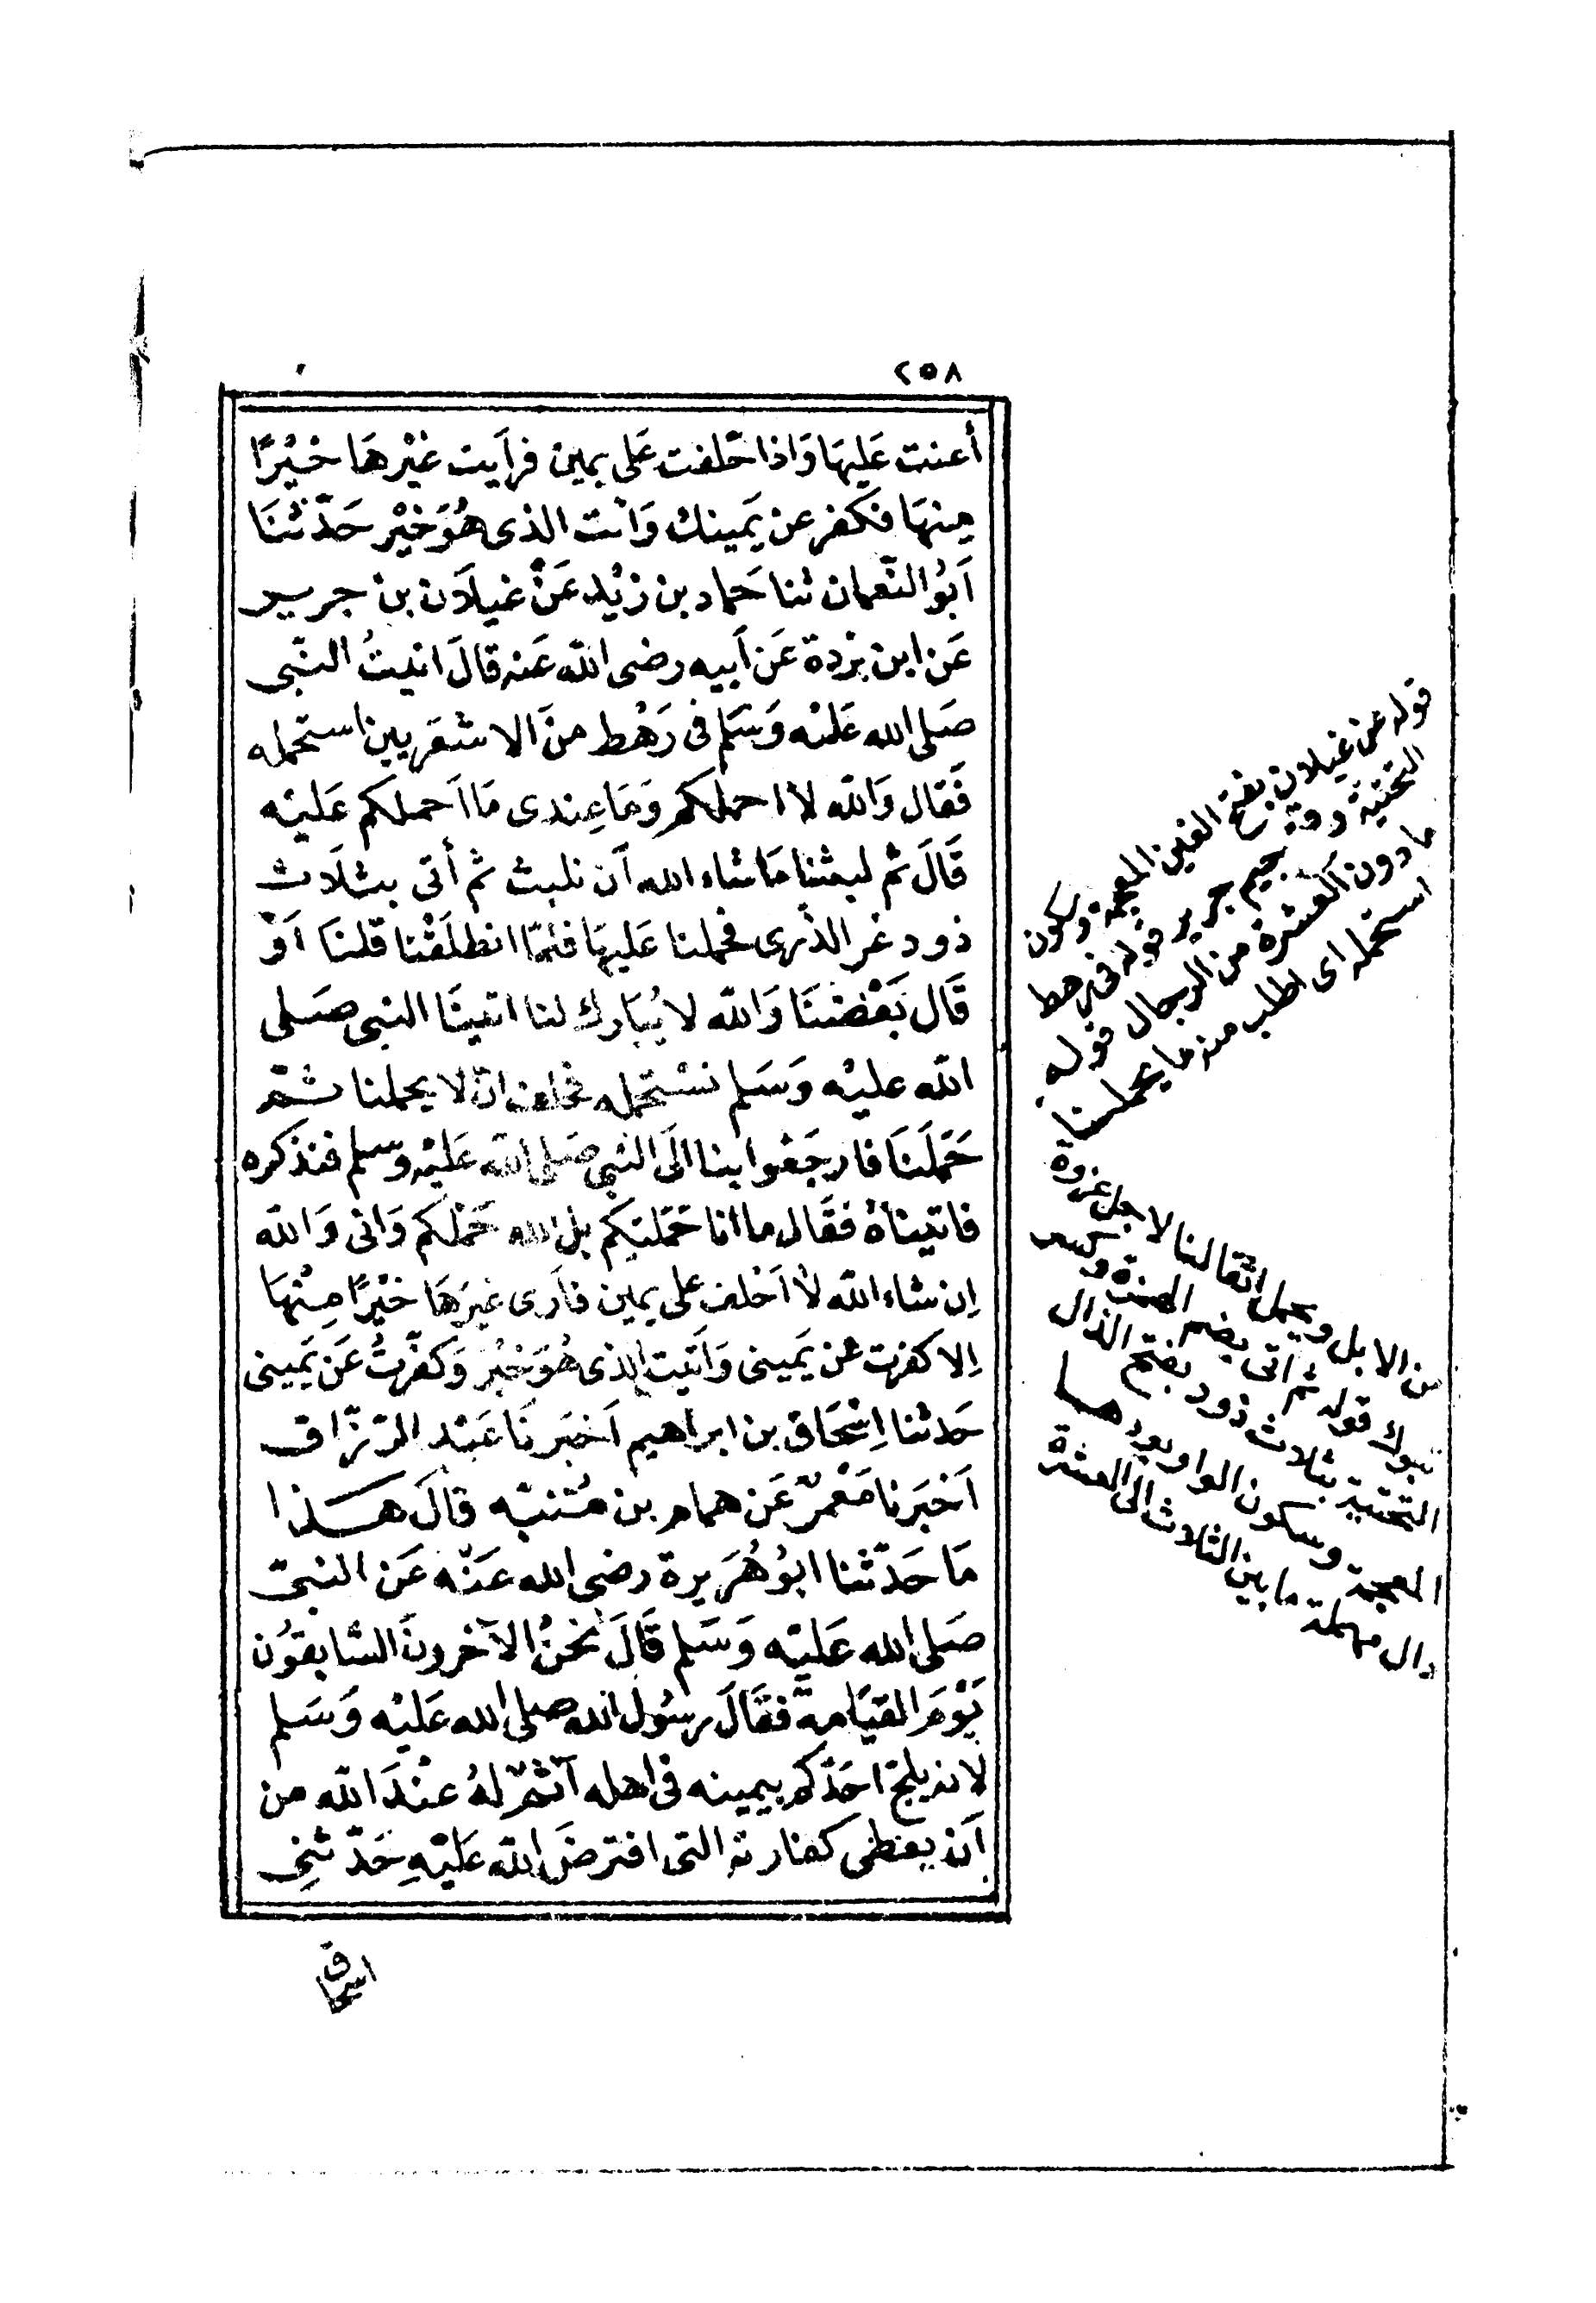 ٢٥٨
أعنت عَليهَا وَاذا حَلفت عَلى يمين فرأيت غيْرهَا خيْرًا
مِنهَا فكفر عن يَمينك وَائت الذى هُوَ خيْر حَدّثنَا
اَبُو النّعمان ثنا حَماد بن زيْد عَنْ غيلَان بن جرير
عَن ابن بُردة عَن أبيه رضى الله عَنه قالَ اتيتُ النّبى
صَلى الله عَليْه وَسَلم فى رَهْط منَ الاشعَريين استحمله
فَقال وَالله لا احملكم وَمَا عِندى مَا احملكم عَليْه
قَالَ ثم لبثنا مَا شاء الله اَن نلبث ثم أتى بثلَاث
ذود غر الذرى فحملنا عَليهَا فلمّا انطلَقْنا قلنَا اَوْ
قَال بَعْضنَا وَالله لا يُبَارك لنا اتينَا النبى صَلى
الله عليْه وَسَلم نستحمله فحلف ان لا يحملنا ثمّ
حَمَلَنَا فارجَعُوا بنا الَى النبى صَلى الله عَليْه وسلم فنذكره
فاتيناهُ فقَال ما انا حَمَلتكم بل الله حَمَلكم وَانى وَالله
اِن شاء الله لا اَحْلف على يمين فاَرى غيْرَهَا خيْرًا مِنْهَا
اِلا كفرت عن يَمينى وَاَتيت الذى هُوَ خيْر وَكفّرتُ عَن يَمينى
حَدثنا اِسْحَاق بن ابراهيم اَخبَرنَا عَبْد الرّزّاق
اَخبَرنا مَعْمَرٌ عَن همام بن مُنبّه قالَ هَذا
مَا حَدّثنا ابُو هُرَيرة رضى الله عَنْه عَن النبىّ
صَلى الله عَليْه وَسَلم قَالَ نحنُ الآخرونَ السّابقوُن
يَوْمَ القيَامة فقَالَ رسُول الله صلى الله عَليْه وَسَلم
لان يلجّ احَدكم بيمينه فى اهله آثمُ لهُ عنْدَ الله من
اَن يعْطى كفارته التى افترضَ الله عَليْهِ حَدّثنِى
اسحاق
قوله عن غيلان بفتح الغين المعجمة وسكون
التحتية وقوله جرير بجيم قوله فى رهط
ما دون العشرة من الرجال قوله
استحمله اى اطلب منه ما يحملنا
من الابل ويحمل اثقالنا لاجل غزوة
تبوك قوله ثم اتى بضم الهمزة وكسر
التحتية بثلاث ذود بفتح الذال
المعجمة وسكون الواو بعدها
دال مهملة ما بين الثلاث الى العشرة